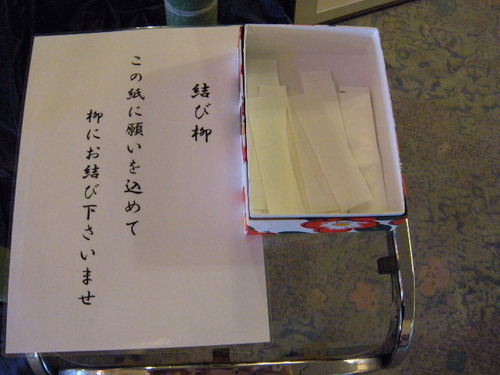 結び柳
この紙に願いを込めて
柳にお結び下さいませ